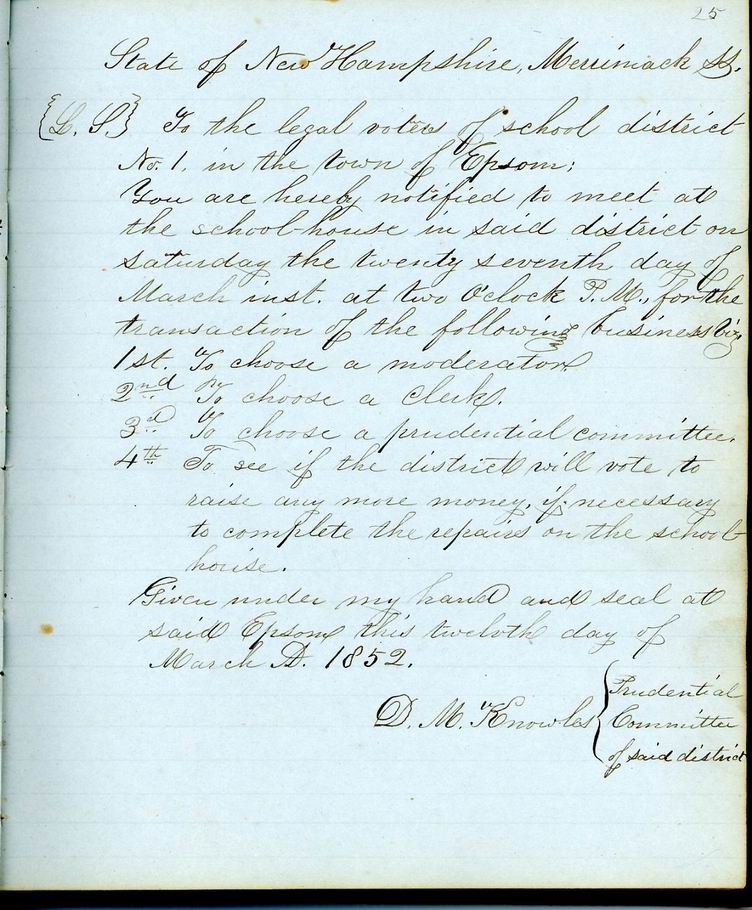 25
State of New Hampshire, Merrimack SS.
{L. S.} To the legal voters of school district
No. 1. in the town of Epsom;
You are hereby notified to meet at
the school-house in said district on
saturday the twenty seventh day of
March inst. at two O'clock P. M., for the
transaction of the following business viz,
1st. To choose a moderator
2nd To choose a Clerk.
3d To choose a prudential committee.
4th To see if the district will vote to
raise any more money, if necessary
to complete the repairs on the school-
house.
Given under my hand and seal at
said Epsom this twelvth day of
March A. 1852.
D. M. Knowles { Prudential
Committee
of said district